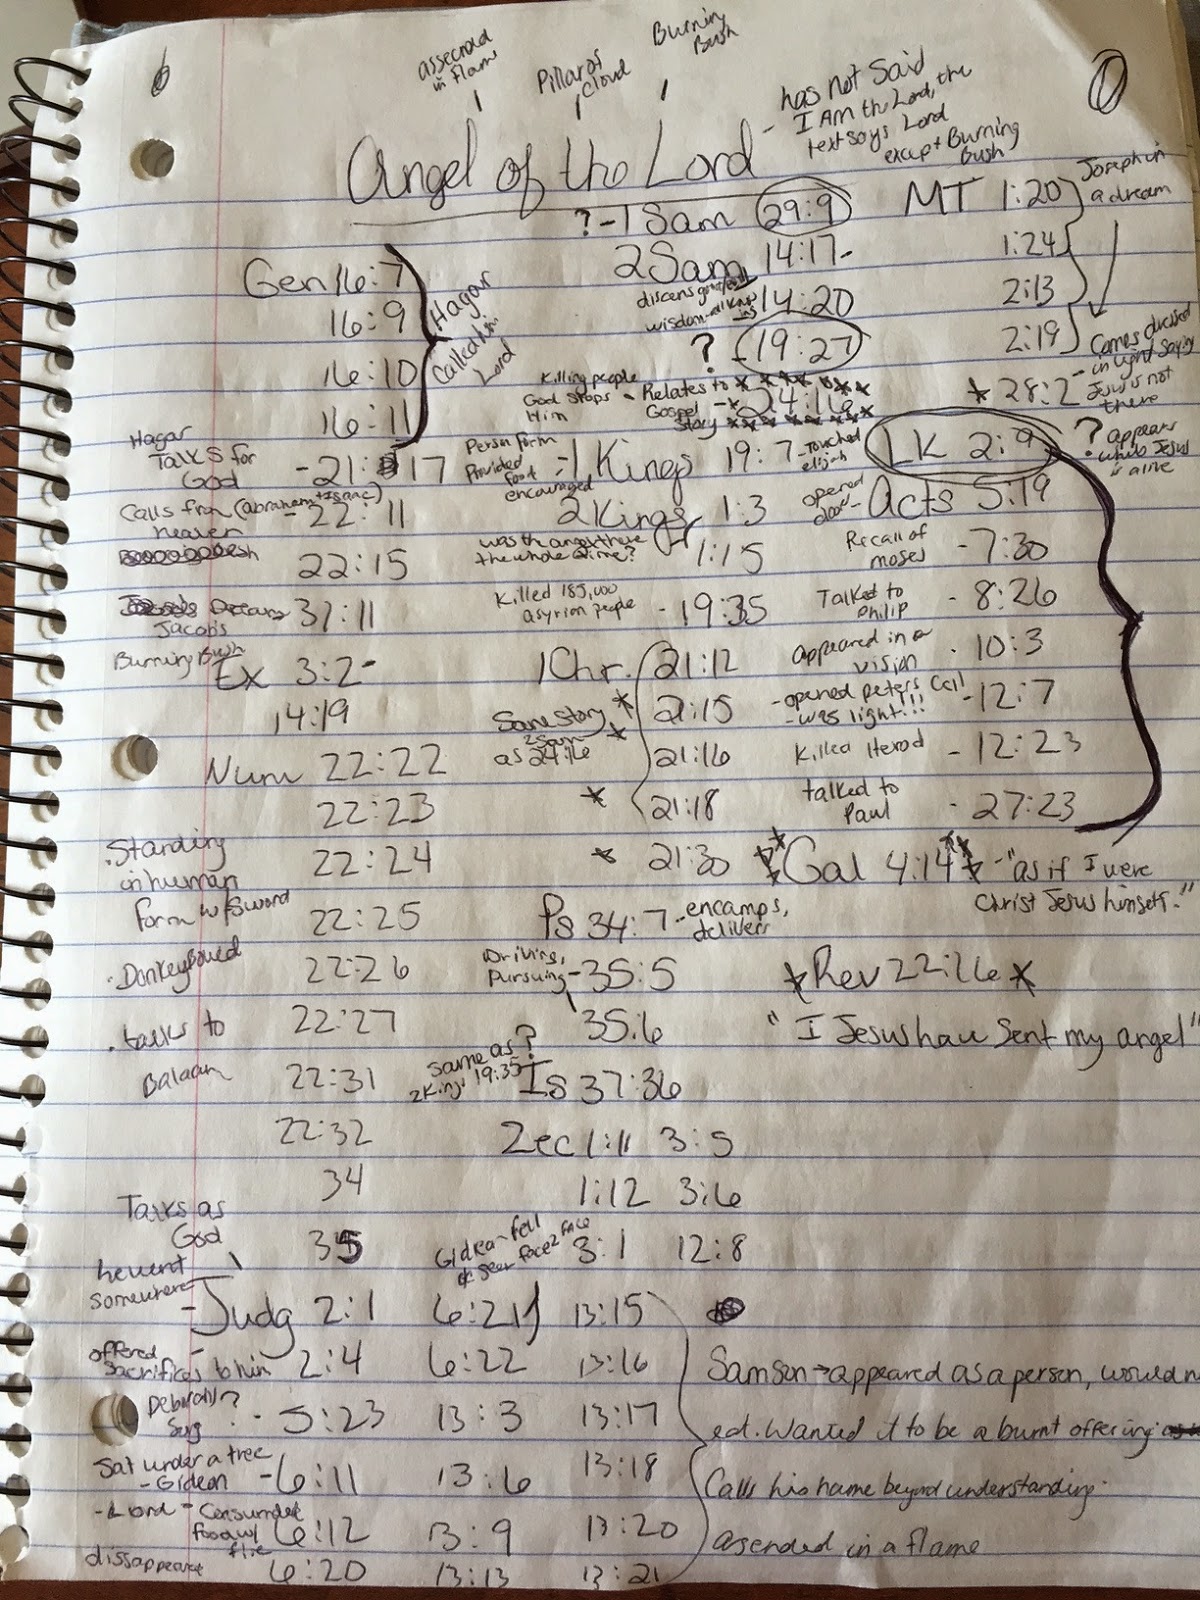 assecnd
in flame
Pillar of
cloud
Burning
Bush
has not said
I AM the Lord, the
text says Lord
except Burning
Bush
Angel of the Lord
Gen 16:7
16:9
16:10
16:11
Hagar
Called him
Lord
Hagar
Talks for
God
- 21:17
Calls from (Abraham + Isaac)
heaven
- 22:11
22:15
Dream
Jacobs
31:11
Burning Bush
Ex 3:2-
14:19
Num 22:22
22:23
. Standing
in human
form w/ Sword
22:24
22:25
. Donkey bowed
22:26
. talks to
Balaam
22:27
22:31
22:32
34
35
Talks as
God
he went
somewhere
- Judg 2:1
offered
sacrifices to him
2:4
Deborah's?
Song
- 5:23
Sat under a tree
- Gideon
- 6:11
- Lord - Consumded
food w/
fire
6:12
dissappeared
6:20
? - 1 Sam 29:9
2 Sam 14:17-
discens good/evil
wisdom - all knowing
14:20
? - 19:27
Killing people
God stops
Him
- Relates to
Gospel
Story
24:16
Person form
Provided
food
encouraged
- 1 Kings 19:7
- touched
elijah
2 Kings 1:3
was the angel there
the whole time?
1:15
Killed 185,000
asyrian people
- 19:35
1 Chr. 21:12
21:15
Same story
as 2 Sam
24:16
21:16
21:18
21:30
Ps 34:7
- encamps,
delivers
Driving,
Pursuing
- 35:5
35:6
same as?
2 Kings 19:35
Is 37:36
Zec 1:11 3:5
1:12 3:6
3:1 12:8
Gideon - fell
seen face 2 face
6:21
6:22
13:3
13:6
13:9
13:13
13:15
13:16
13:17
13:18
13:20
13:21
Samson → appeared as a person, would n
eat. Wanted it to be a burnt offering
Calls his name beyond understanding.
asended in a flame
MT 1:20
1:24
2:13
2:19
Joseph in
a dream
* 28:2
- Comes dressed
in light saying
Jesus is not
there
LK 2:9
? appears
while Jesus
is alive
opened
door
- Acts 5:19
Recall of
moses
- 7:30
Talked to
Philip
- 8:26
appeared in a
vision
- 10:3
- opened peters cell
- was light!!!
- 12:7
Killed Herod
- 12:23
talked to
Paul
- 27:23
Gal 4:14
- "as if I were
Christ Jesus himself."
* Rev 22:16 *
" I Jesus have sent my angel"